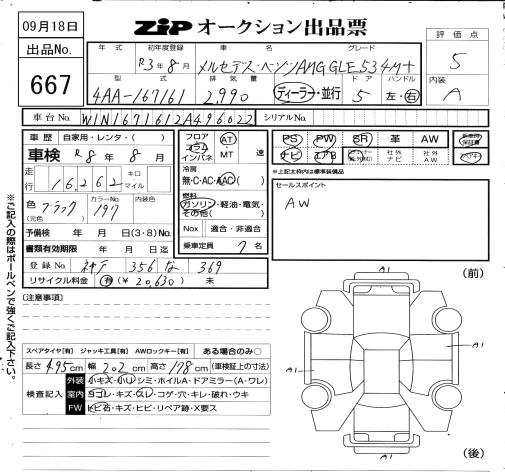 09月18日
ZIP オークション出品票
出品No.
667
年式 初年度登録 車名 グレード
R3年8月 メルセデス・ベンツAMG GLE53 4M+
型式 排気量 ドア ハンドル
4AA-167161 2,990 ディーラー・並行 5 左・右
評価点
S
内装
A
車台No. W1N1671612A496022 シリアルNo.
車歴 自家用・レンタ・( )
車検 R8年8月
走行 16,262 キロ マイル
色 ブラック (元色) カラーNo. 197 内装色
予備検 年 月 日(3・8)No.
書類有効期限 年 月 日迄
登録No. 神戸 356 な 369
リサイクル料金 有(¥20,630) 未
フロア コラム インパネ AT・MT 速
冷房
無・C・AC・AAC( )
燃料
ガソリン・軽油・電気・その他( )
Nox 適合・非適合
乗車定員 7名
PS PW SR 革 AW
ナビ エアB 社外ナビ 社外AW
新車時保証書
※上記太枠内は標準装備品
セールスポイント
AW
※ご記入の際はボールペンで強くご記入下さい。
(注意事項)
スペアタイヤ[有] ジャッキ工具[有] AWロックキー[有] ある場合のみ○
長さ495cm 幅202cm 高さ178cm (車検証上の寸法)
検査記入
外装 小キズ・小凹・シミ・ホイルA・ドアミラー(A・ワレ)
室内 ヨゴレ・キズ・スレ・コゲ・穴・キレ・破れ・ウキ
FW トビ石・キズ・ヒビ・リペア跡・X要ス
(前)
A1
A1
A1
A1
(後)